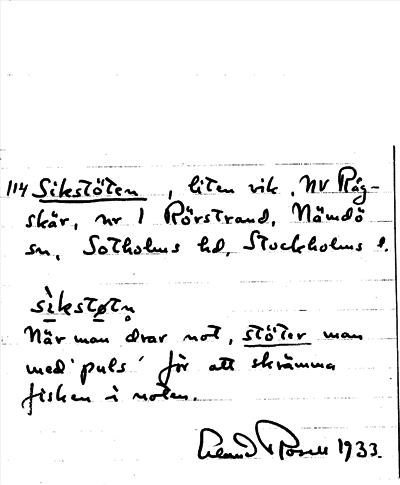 114 Sikstöten, liten vik, NV Råg-
skär, nr 1 Rörstrand, Nämdö
sn, Sotholms hd, Stockholms l.
sìkstøtn̥
När man drar not, stöter man
med 'puls' för att skrämma
fisken i noten.
1933.